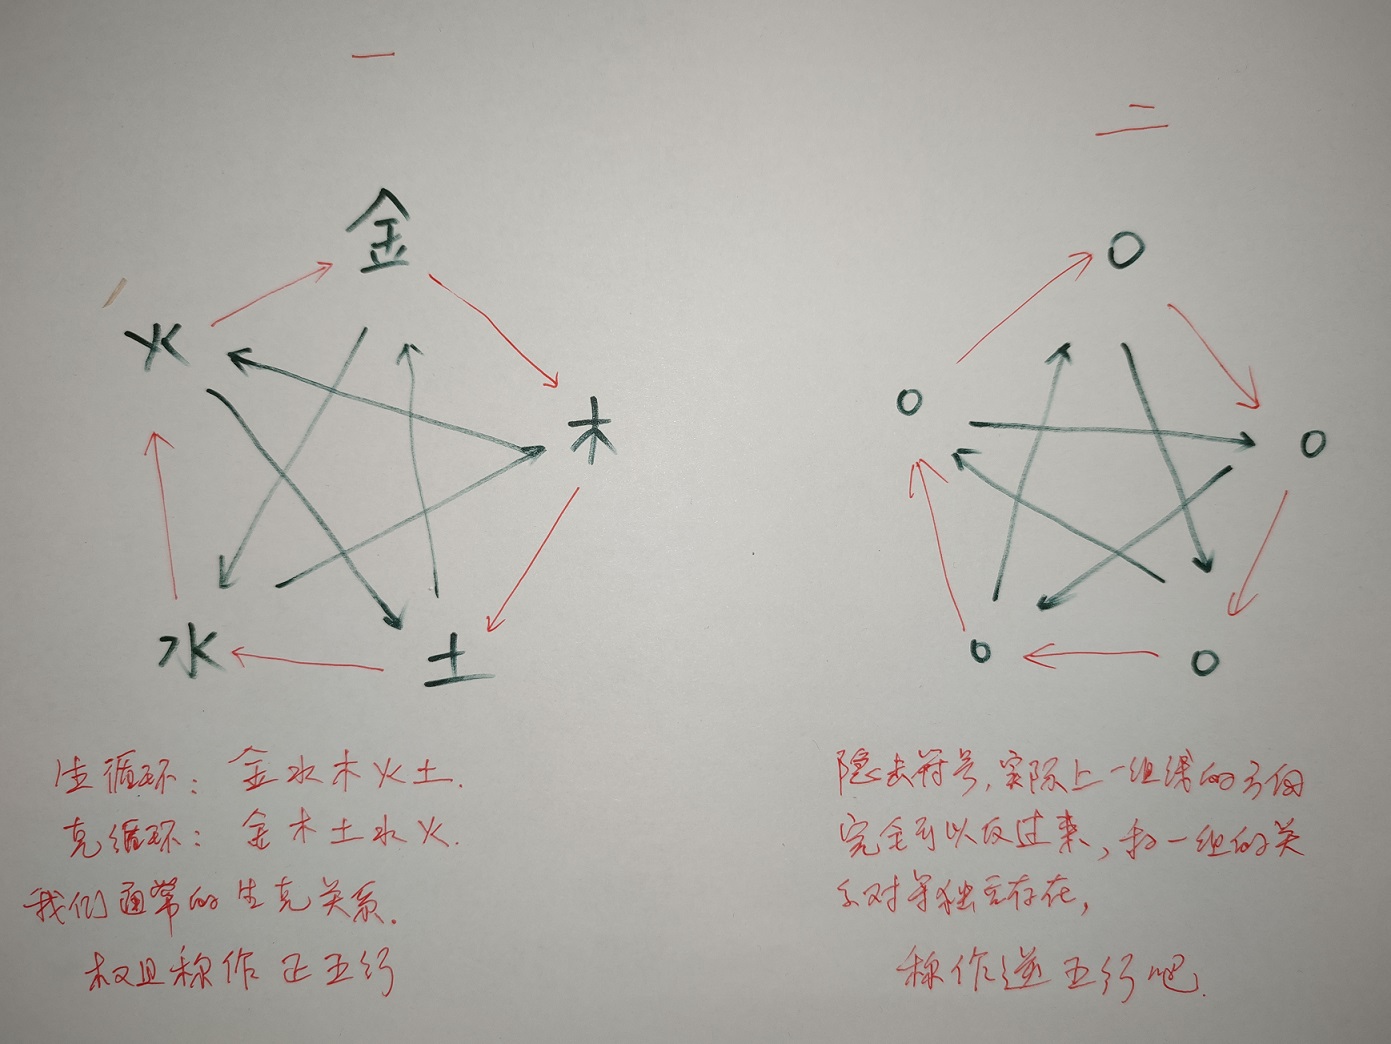 一
二
金
火
木
水
土
生循环：金水木火土.
克循环：金木土水火.
我们通常的生克关系.
权且称作正五行
隐去符号,实际上一组线的方向
完全可以反过来,和一组的关
系对等独立存在,
称作逆五行吧.